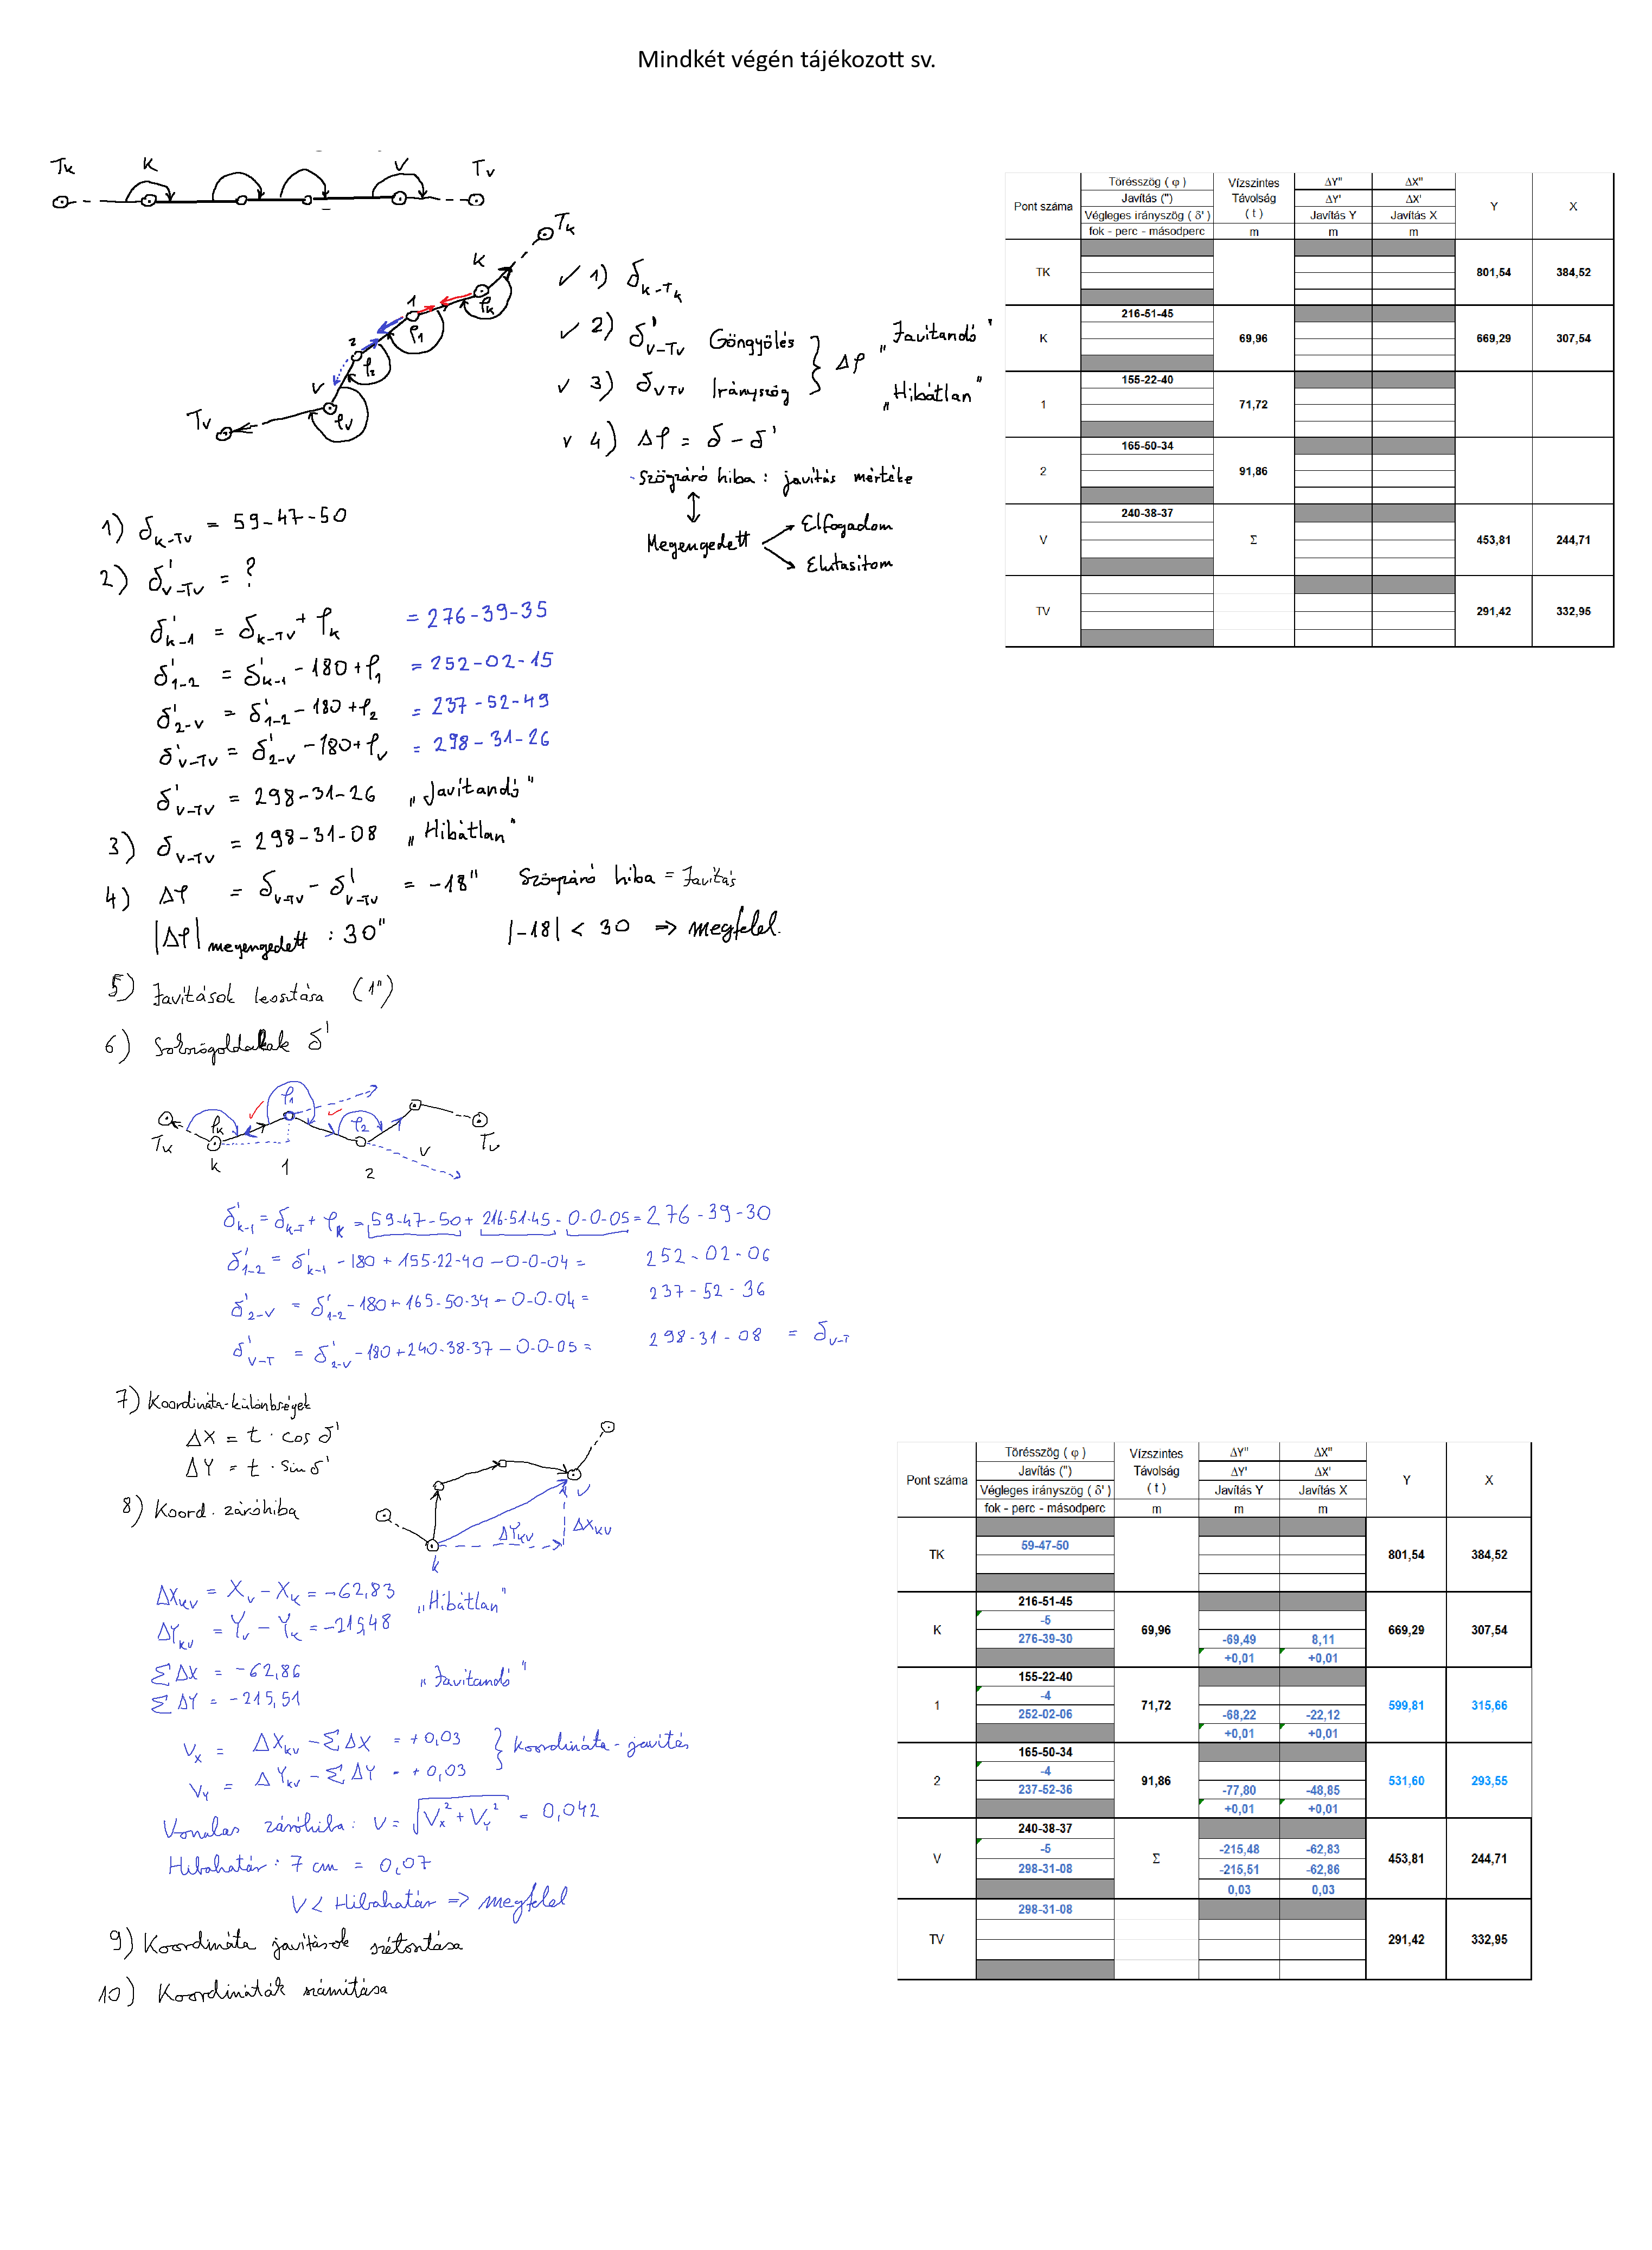 Mindkét végén tájékozott sv.
Tk K V Tv
Tk
K
φk
1
φ1
2
φ2
V
φv
Tv
✓ 1) δk-Tk
✓ 2) δ'V-Tv Göngyölés
✓ 3) δVTv Irányszög
} Δφ „Javítandó"
„Hibátlan"
✓ 4) Δφ = δ - δ'
- Szögzáró hiba : javítás mértéke
Megengedett
Elfogadom
Elutasitom
Pont száma
Törésszög ( φ )
Javítás (")
Végleges irányszög ( δ' )
fok - perc - másodperc
Vízszintes Távolság ( t )
m
ΔY" ΔX"
ΔY' ΔX'
Javítás Y Javítás X
m m
Y X
TK 801,54 384,52
216-51-45
K 69,96 669,29 307,54
155-22-40
1 71,72
165-50-34
2 91,86
240-38-37
V Σ 453,81 244,71
TV 291,42 332,95
1) δk-Tv = 59-47-50
2) δ'V-Tv = ?
δ'k-1 = δk-Tv + φk = 276-39-35
δ'1-2 = δ'k-1 - 180 + φ1 = 252-02-15
δ'2-V = δ'1-2 - 180 + φ2 = 237-52-49
δ'V-Tv = δ'2-V - 180 + φv = 298-31-26
δ'V-Tv = 298-31-26 „Javítandó"
3) δV-Tv = 298-31-08 „Hibátlan"
4) Δφ = δV-TV - δ'V-TV = -18" Szögzáró hiba = Javítás
|Δφ| megengedett : 30" |-18| < 30 => megfelel.
5) Javítások leosztása (1")
6) Sokszögoldalak δ'
Tk φk k φ1 1 φ2 2 V Tv
δ'k-1 = δk-T + φk = 59-47-50 + 216-51-45 - 0-0-05 = 276-39-30
δ'1-2 = δ'k-1 - 180 + 155-22-40 - 0-0-04 = 252-02-06
δ'2-V = δ'1-2 - 180 + 165-50-34 - 0-0-04 = 237-52-36
δ'V-T = δ'2-V - 180 + 240-38-37 - 0-0-05 = 298-31-08 = δV-T
7) Koordináta-különbségek
ΔX = t · cos δ'
ΔY = t · sin δ'
8) Koord. záróhiba
k ΔYKV ΔXKV V
ΔXKV = XV - XK = -62,83 „Hibátlan"
ΔYKV = YV - YK = -215,48
ΣΔX = -62,86 „Javítandó"
ΣΔY = -215,51
Vx = ΔXKV - ΣΔX = +0,03
Vy = ΔYKV - ΣΔY = +0,03
} Koordináta-javítás
Vonalas záróhiba: V = √Vx² + Vy² = 0,042
Hibahatár: 7 cm = 0,07
V < Hibahatár => megfelel
9) Koordináta javítások szétosztása
10) Koordináták számítása
Pont száma
Törésszög ( φ )
Javítás (")
Végleges irányszög ( δ' )
fok - perc - másodperc
Vízszintes Távolság ( t )
m
ΔY" ΔX"
ΔY' ΔX'
Javítás Y Javítás X
m m
Y X
59-47-50
TK 801,54 384,52
216-51-45
-5
K 69,96 669,29 307,54
276-39-30 -69,49 8,11
+0,01 +0,01
155-22-40
-4
1 71,72 599,81 315,66
252-02-06 -68,22 -22,12
+0,01 +0,01
165-50-34
-4
2 91,86 531,60 293,55
237-52-36 -77,80 -48,85
+0,01 +0,01
240-38-37
-5 -215,48 -62,83
V Σ 453,81 244,71
298-31-08 -215,51 -62,86
0,03 0,03
298-31-08
TV 291,42 332,95